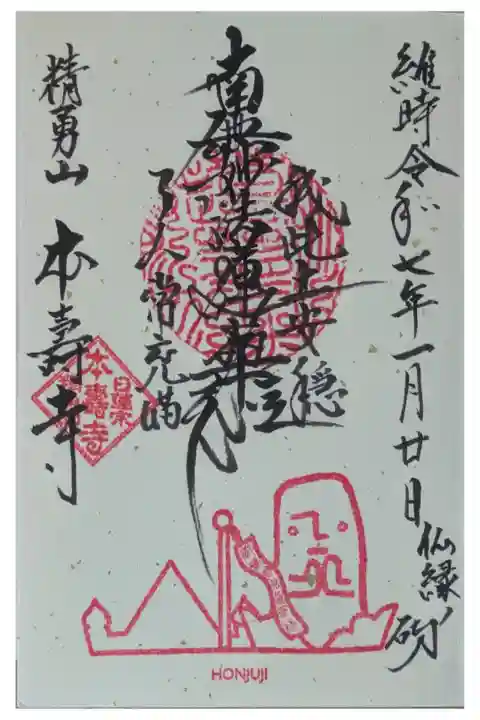 維時令和七年一月廿日
仏縁
我此土安穏
南無妙法蓮華経
天人常充満
精勇山 本壽寺
日蓮宗
本壽寺
HONJUJI